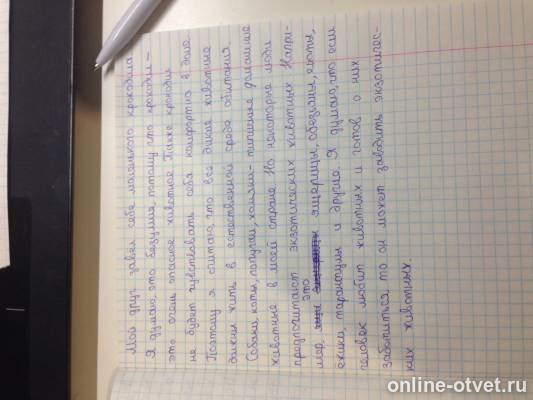 Мой друг завёл себе маленького крокодила
Я думаю, это безумие, потому что крокодил –
это очень опасное животное Также крокодил
не будет чувствовать себя комфортно в доме
Поэтому я считаю, что все дикие животные
должны жить в естественной среде обитания.
Собаки, коты, попугаи, хомяки – типичные домашние
животные в моей стране Но некоторые люди
предпочитают экзотических животных Напри-
мер, это ящерицы, обезьяны, еноты,
ежики, тарантулы и другие Я думаю, что если
человек любит животных и готов о них
заботиться, то он может заводить экзотичес-
ких животных.
online-otvet.ru